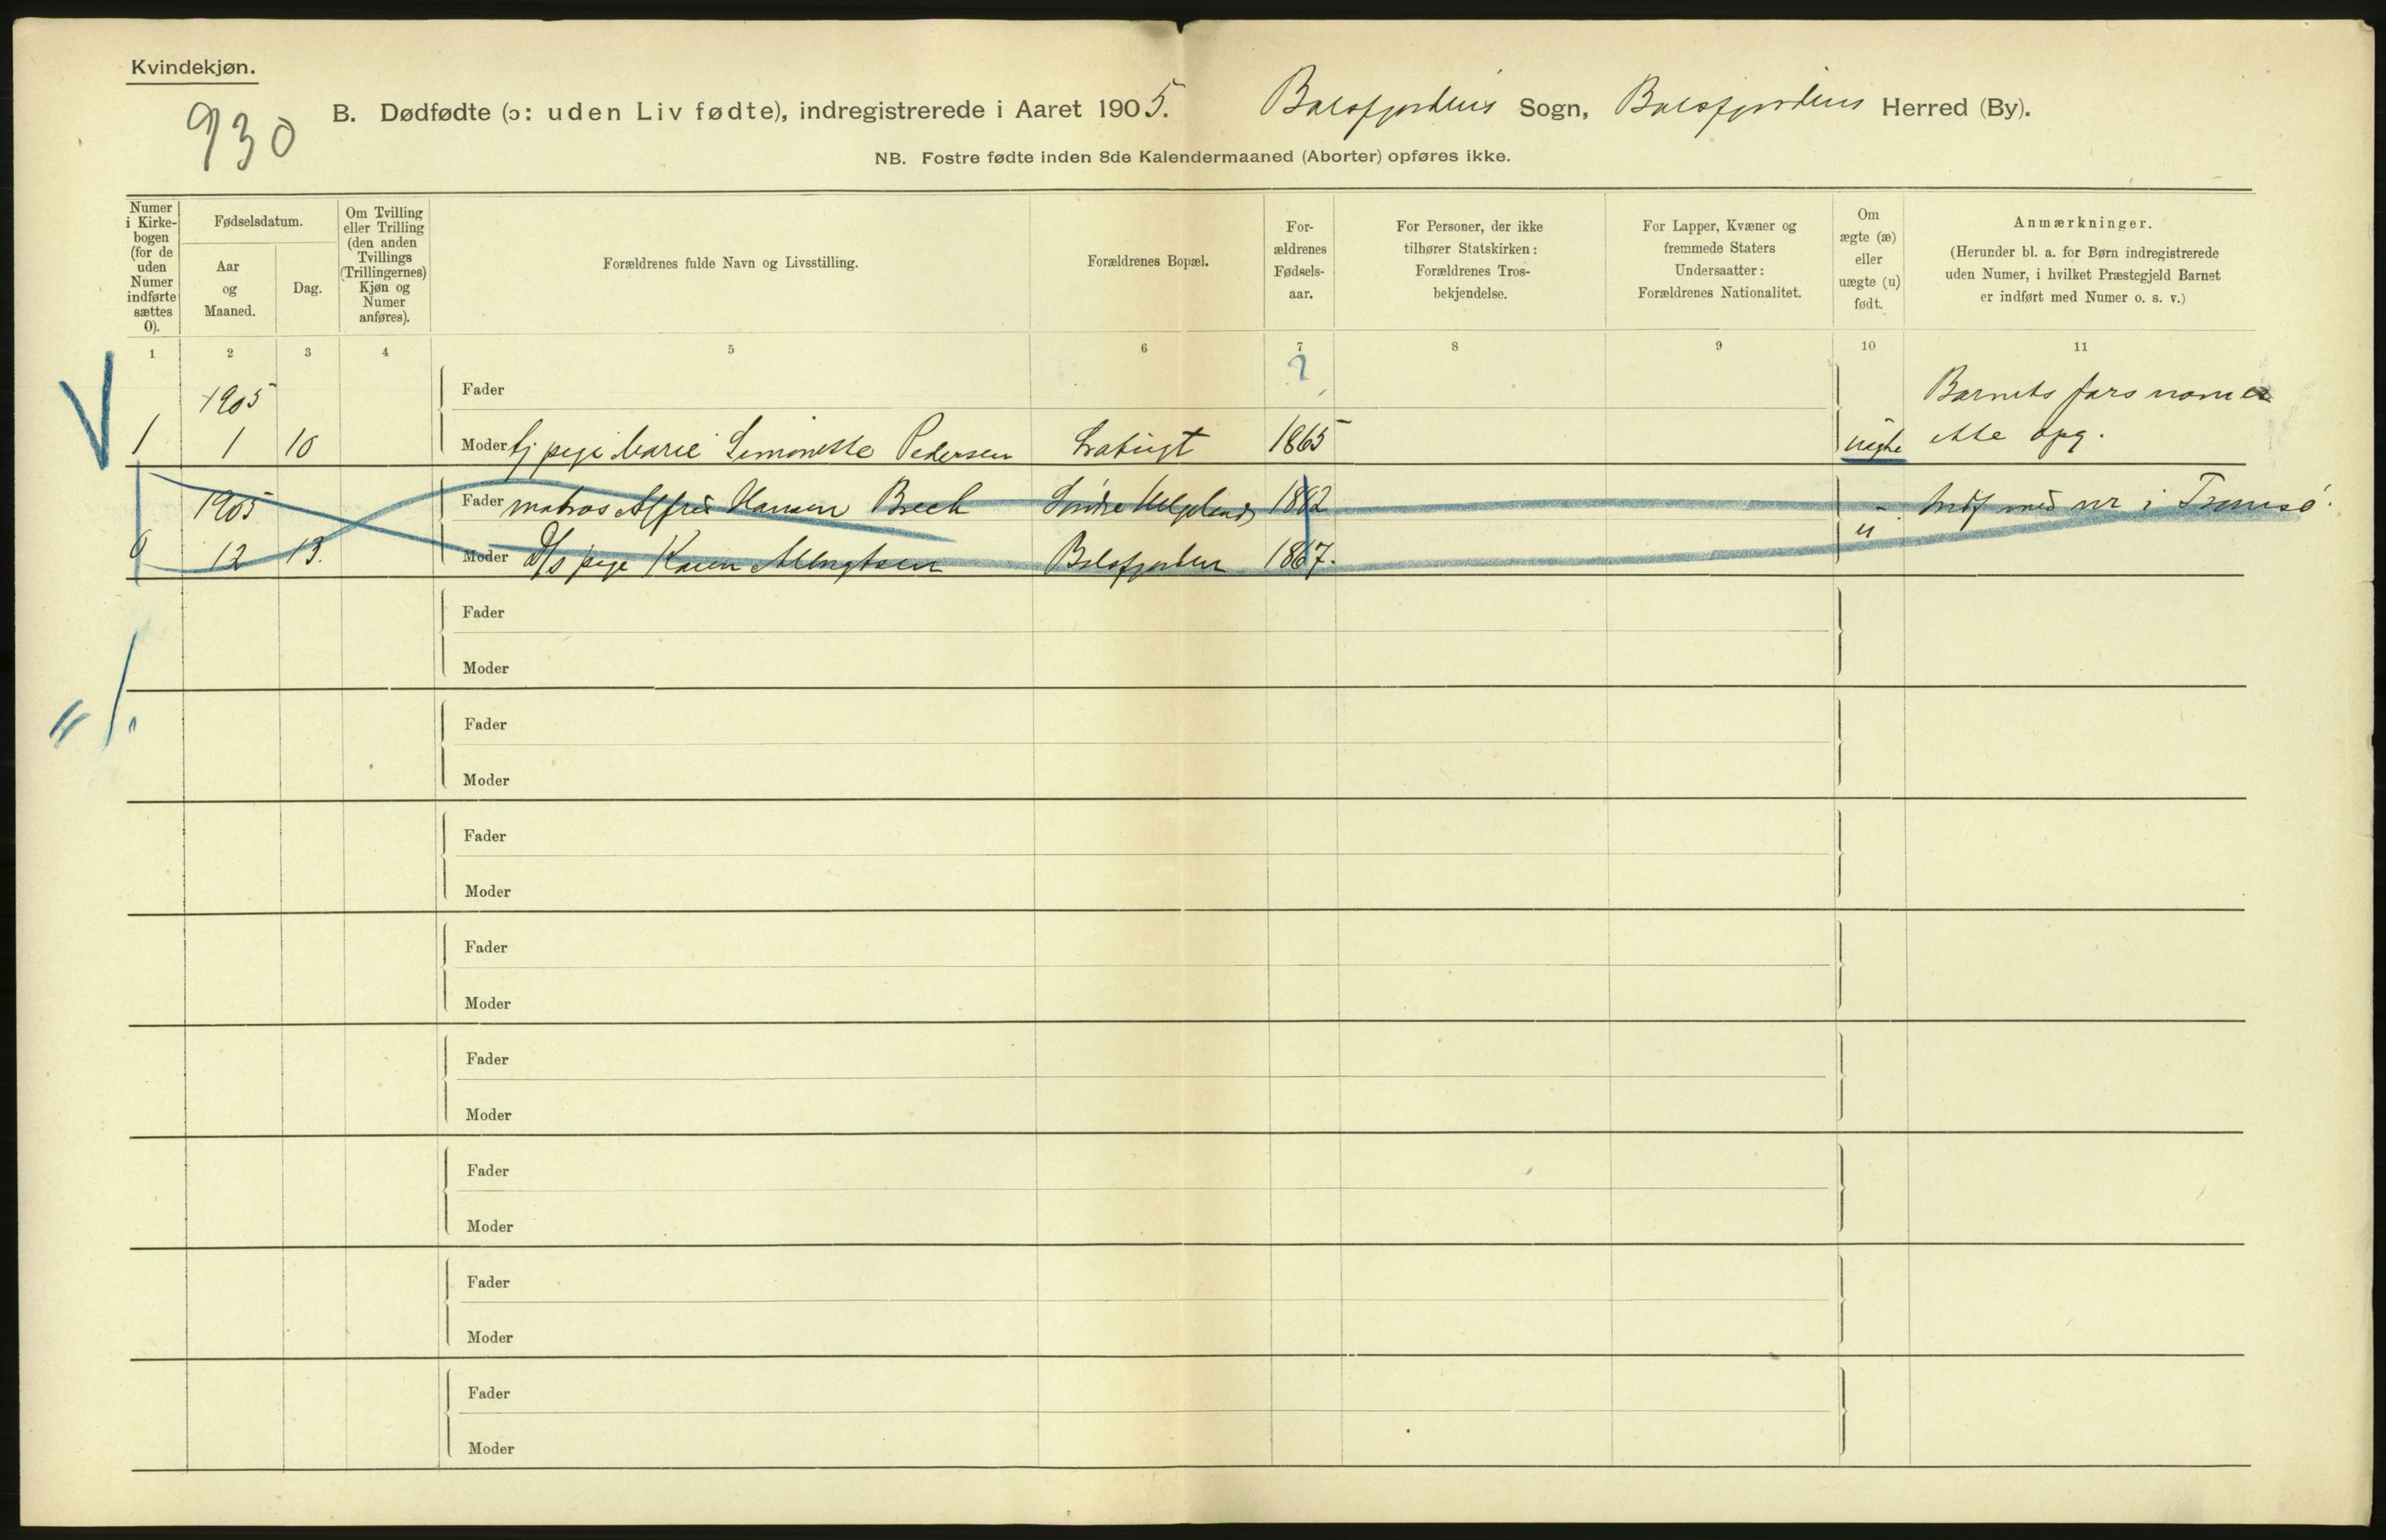 Kvindekjøn.
930
B. Dødfødte (ɔ: uden Liv fødte), indregistrerede i Aaret 1905. Balsfjordens Sogn, Balsfjordens Herred (By).
NB. Fostre fødte inden 8de Kalendermaaned (Aborter) opføres ikke.
Numer i Kirkebogen (for de uden Numer indførte sættes 0).
Fødselsdatum.
Aar og Maaned.
Dag.
Om Tvilling eller Trilling (den anden Tvillings (Trillingernes) Kjøn og Numer anføres).
Forældrenes fulde Navn og Livsstilling.
Forældrenes Bopæl.
For-ældrenes Fødsels-aar.
For Personer, der ikke tilhører Statskirken: Forældrenes Tros-bekjendelse.
For Lapper, Kvæner og fremmede Staters Undersaatter: Forældrenes Nationalitet.
Om ægte (æ) eller uægte (u) født.
Anmærkninger.
(Herunder bl. a. for Børn indregistrerede uden Numer, i hvilket Præstegjeld Barnet er indført med Numer o. s. v.)
1 2 3 4 5 6 7 8 9 10 11
1905 Fader ? Barnets fars navn er
1 1 10 Moder tj pige Marie Simonette Pedersen 1865 uegte ikke opg.
1905 Fader matros Alfred Hansen Brech Søndre Helgeland 1882 Indf med nr i Tromsø.
0 12 13. Moder pige Karen Balsfjorden 1867. u
Fader
Moder
Fader
Moder
Fader
Moder
Fader
Moder
Fader
Moder
Fader
Moder
Fader
Moder
Fader
Moder